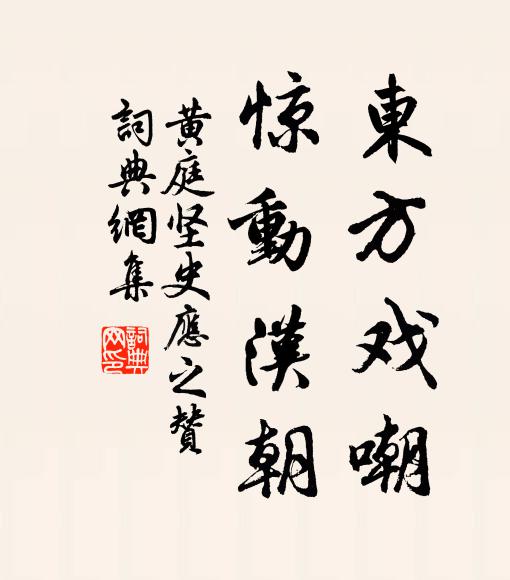 東方戏嘲
惊動漢朝
黄庭坚史應之贊
詞典網集
詞典网印